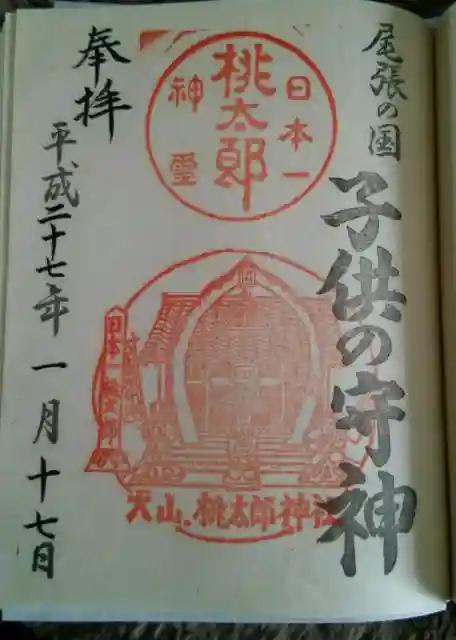 尾張の国
子供の守神
日本一
桃太郎
神霊
犬山.桃太郎神社
奉拝
平成二十七年一月十七日